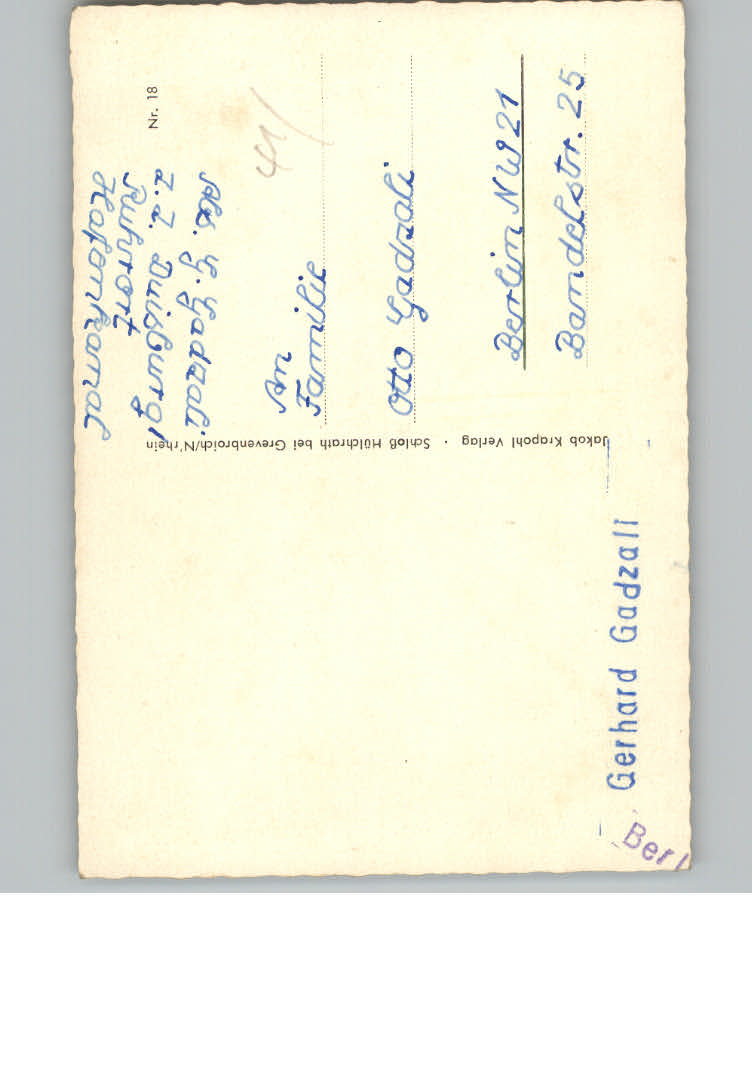 Nr. 18
Abs. G. Gadzali
z.Z. Duisburg
Ruhrort
Hafenkanal
41/
An
Familie
Otto Gadzali
Berlin NW 21
Bandelstr. 25
Jakob Krapohl Verlag · Schloß Hülchrath bei Grevenbroich/N'rhein
Gerhard Gadzali
Berl